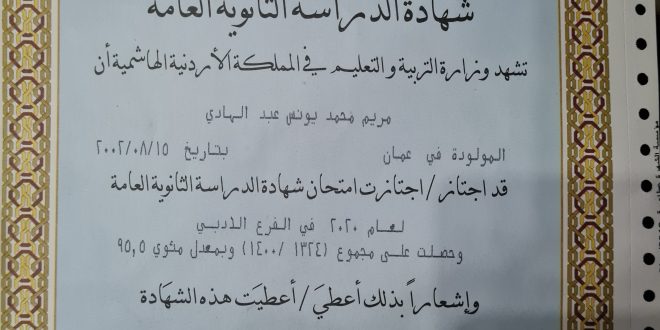 شهادة الدراسة الثانوية العامة
تشهد وزارة التربية والتعليم في المملكة الأردنية الهاشمية أن
مريم محمد يونس عبد الهادي
المولودة في عمان بتاريخ ٢٠٠٢/٠٨/١٥
قد اجتاز / اجتازت امتحان شهادة الدراسة الثانوية العامة
لعام ٢٠٢٠ في الفرع الأدبي
وحصلت على مجموع (١٣٢٤ /١٤٠٠) وبمعدل مئوي ٩٥,٥
وإشعاراً بذلك أعطيَ / أعطيَت هذه الشهَادة